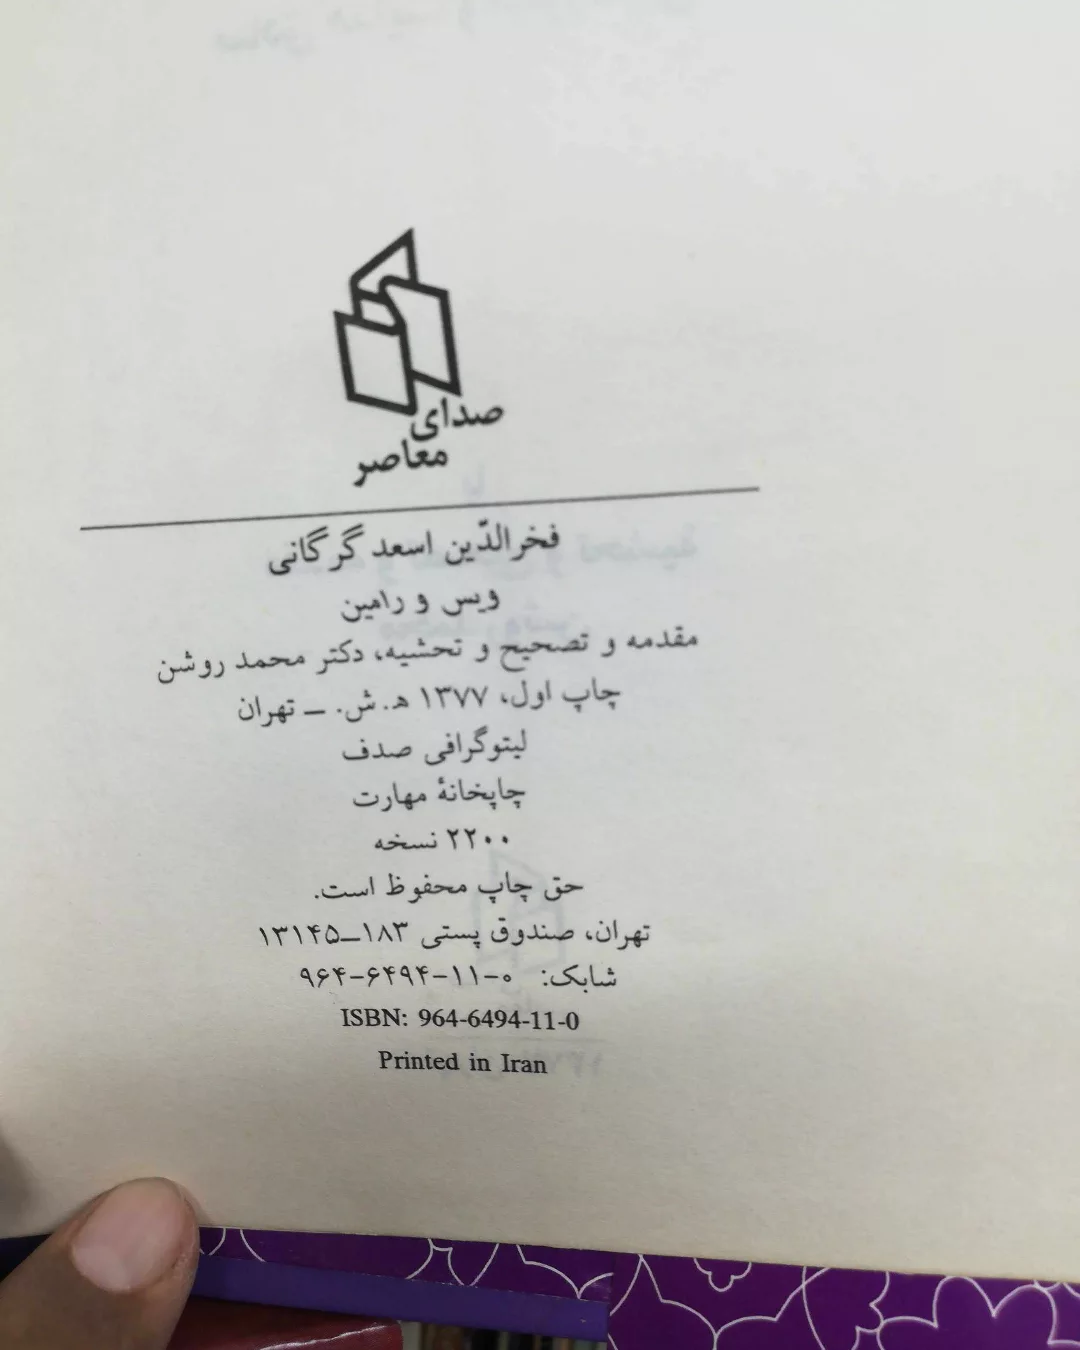 صدای
معاصر
فخرالدّین اسعد گرگانی
ویس و رامین
مقدمه و تصحیح و تحشیه، دکتر محمد روشن
چاپ اول، ۱۳۷۷ ه‍. ش. ــ تهران
لیتوگرافی صدف
چاپخانهٔ مهارت
۲۲۰۰ نسخه
حق چاپ محفوظ است.
تهران، صندوق پستی ۱۸۳ــ۱۳۱۴۵
شابک: ۰-۱۱-۶۴۹۴-۹۶۴
ISBN: 964-6494-11-0
Printed in Iran